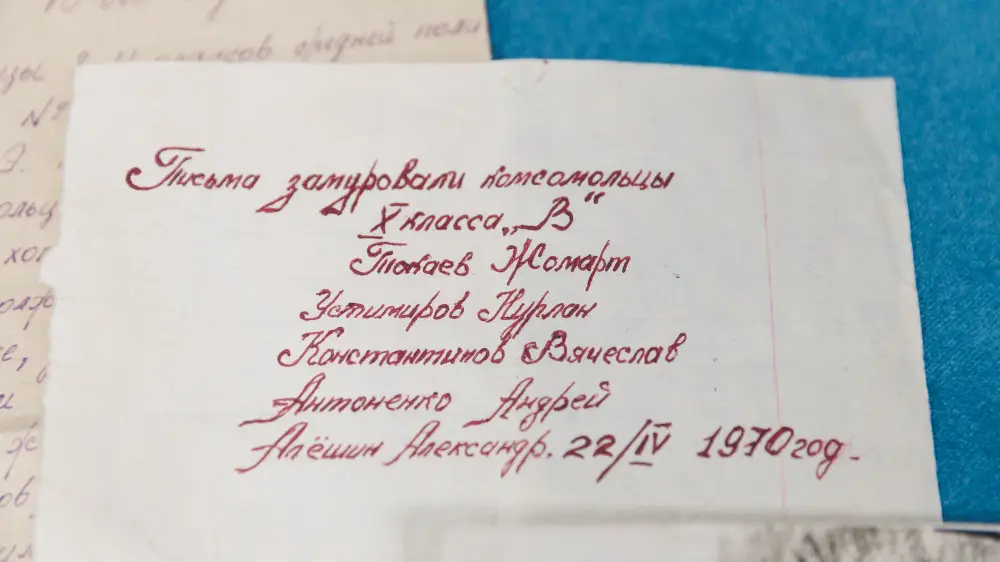 цы
классов средней
№
Письма замуровали комсомольцы
X класса „В“
Токаев Жомарт
Устимиров Нурлан
Константинов Вячеслав
Антоненко Андрей
Алёшин Александр. 22/IV 1970 год.